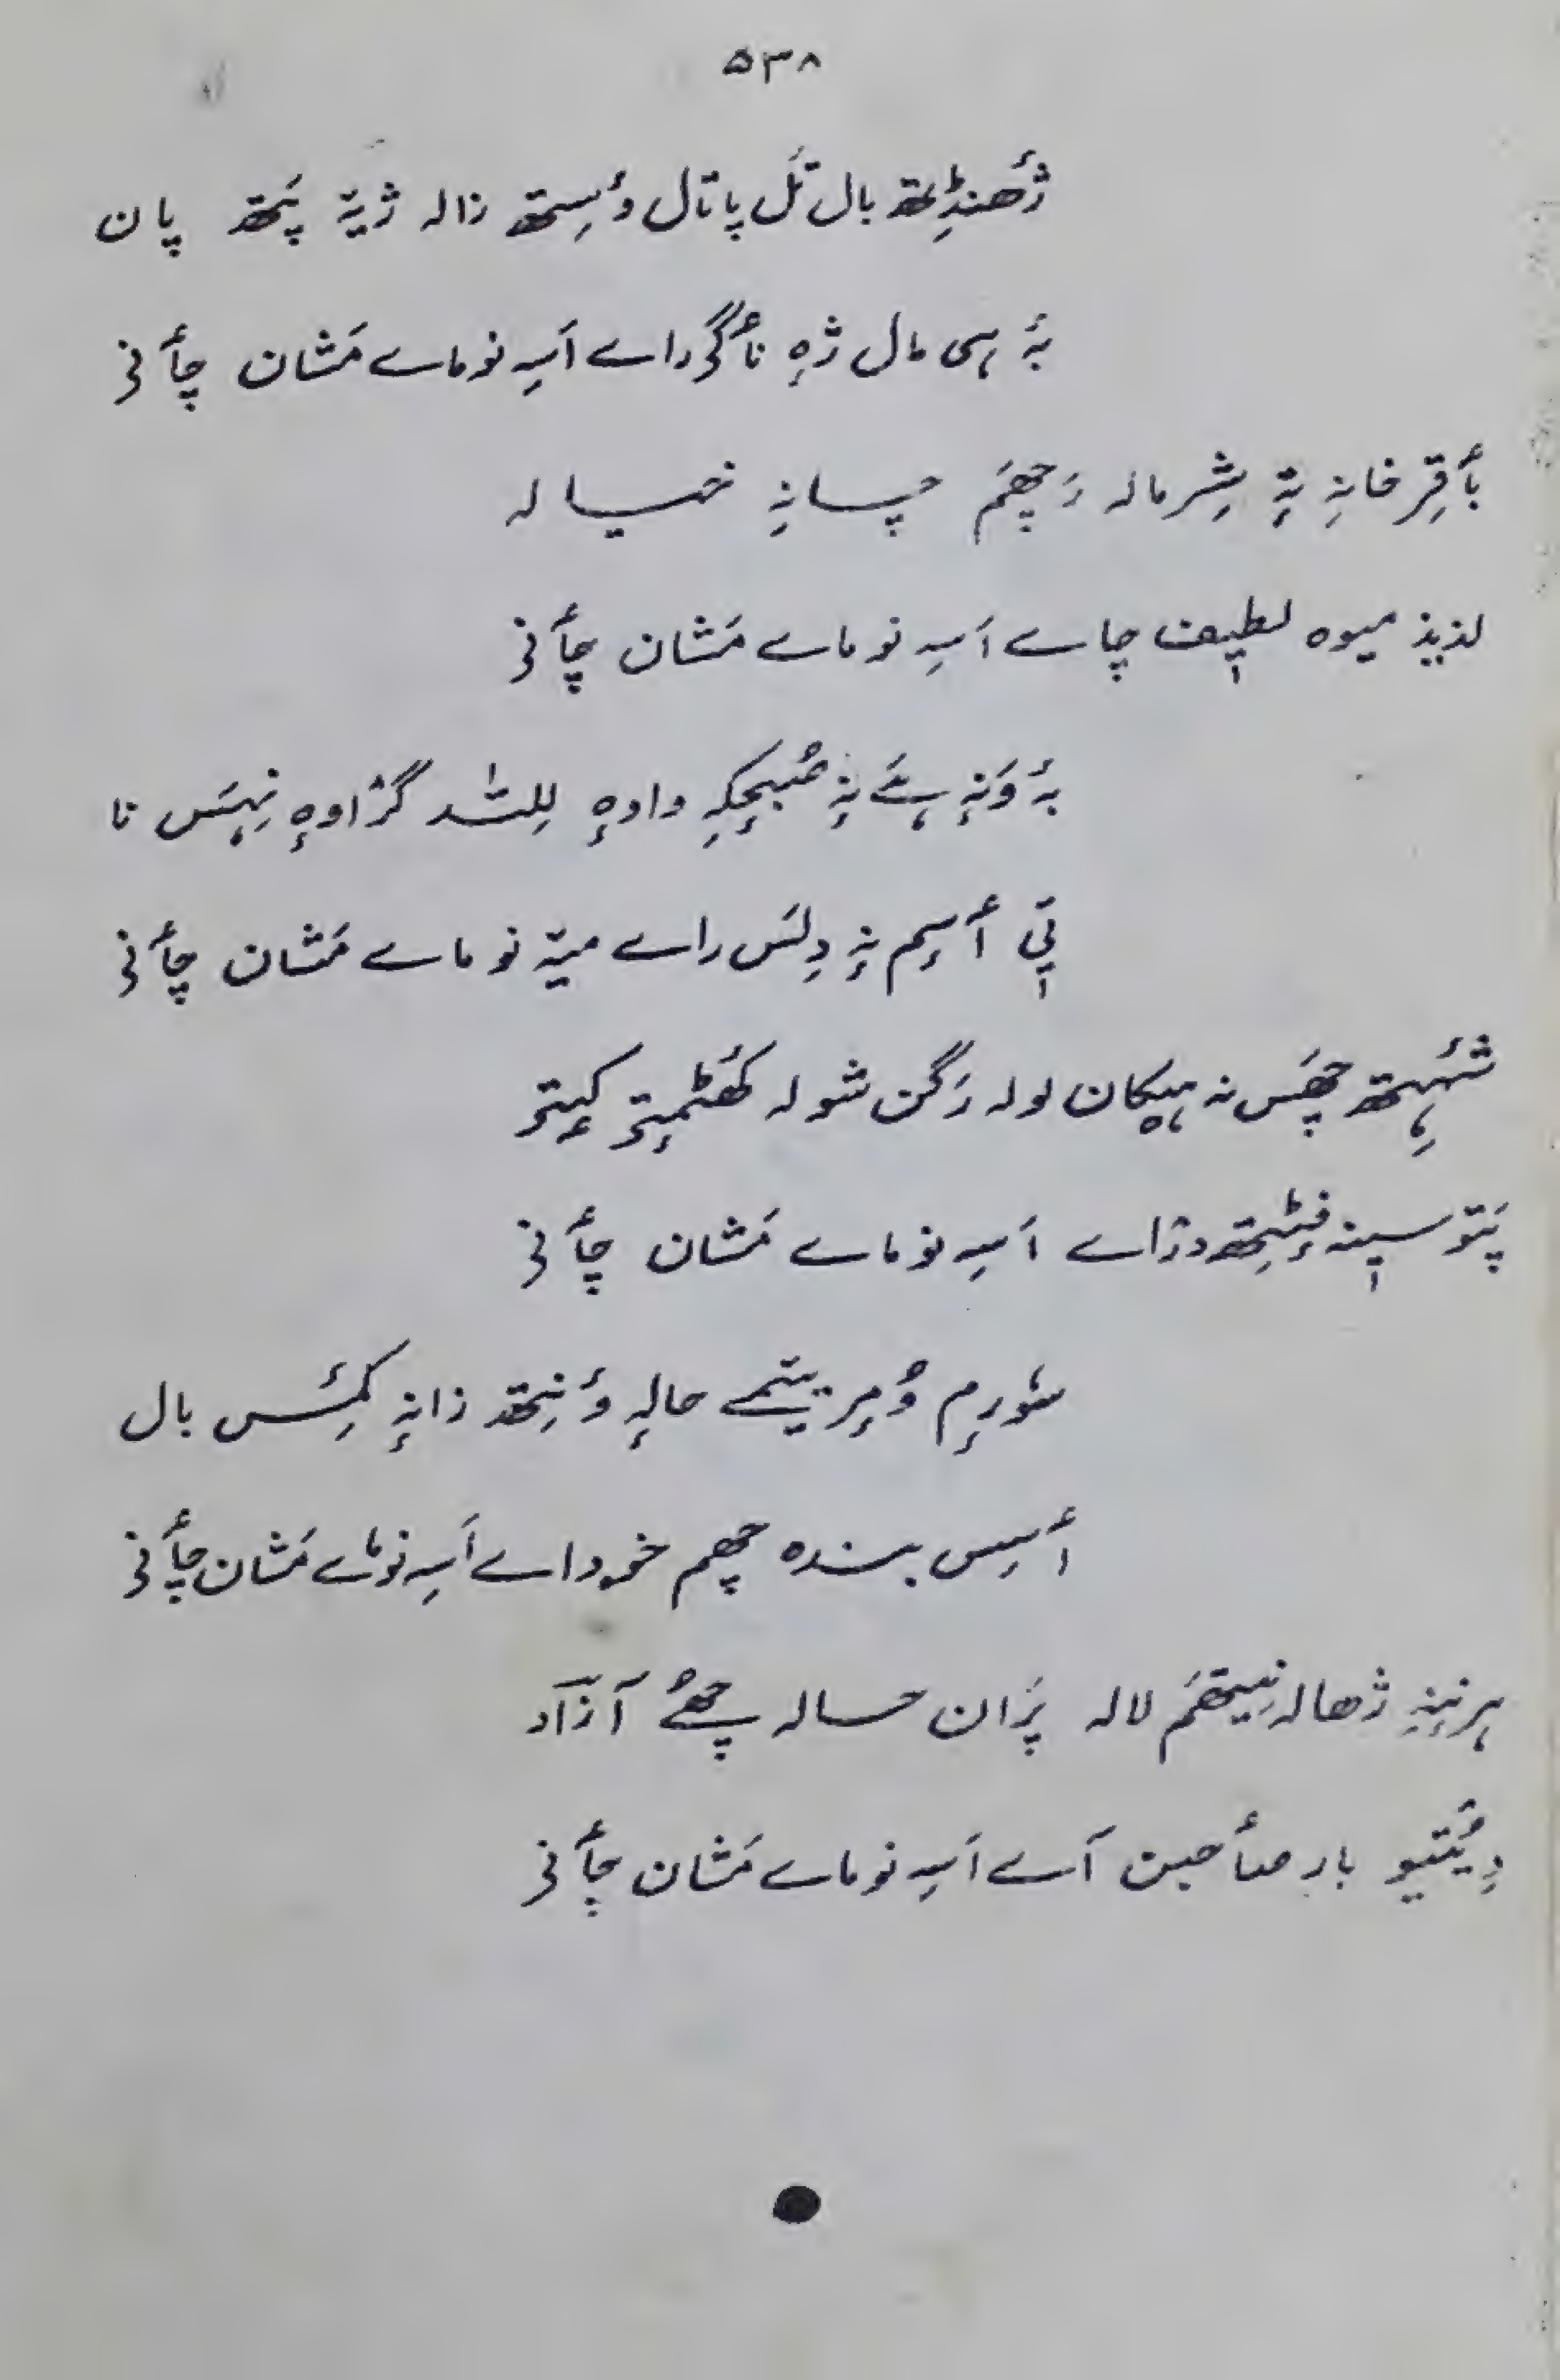 ۵۳۸
ژٔھنڈِتھ بال تَل پاتال ؤسِتھ زالہ ژیۃ پَتھ پان
بۂ ہی مال ژٕہ نأگۍ راے اَسہِ نو ماے مَشان چأنۍ
بأقِر خانہِ تہٕ شِرمالہ رَچھَم چسانہِ خیالہ
لذیذ میوہ لطیٖف چاے اَسہِ نو ماے مَشان چأنۍ
بۂ وَنہٕ ہےَ نہٕ صُبحٕکہِ واوہٕ لِلٹد گژاوہٕ نِہَس نا
تی أسِم نہٕ دِلَس راے میۃ نو ماے مَشان چأنۍ
شہِتھ چھَس نہ ہیکان لولہ رَگَن شولہ کھٔٹمٕتۍ کیٖتۍ
پَتو سیٖنہ فٕٹِتھ دزاے اَسہِ نو ماے مَشان چأنۍ
سٔورِم وُمِر یتمے حالہٕ ؤنِتھ زانہِ کَمِس بال
أسِس بندہ چھم خوداے اَسہِ نو ماے مَشان چأنۍ
ہرنہِ ژھالہ نِیتھَم لالہ پَران حسالہ چھےُ آزآد
دِیُتیو بار صأحبن آے اَسہِ نو ماے مَشان چأنۍ